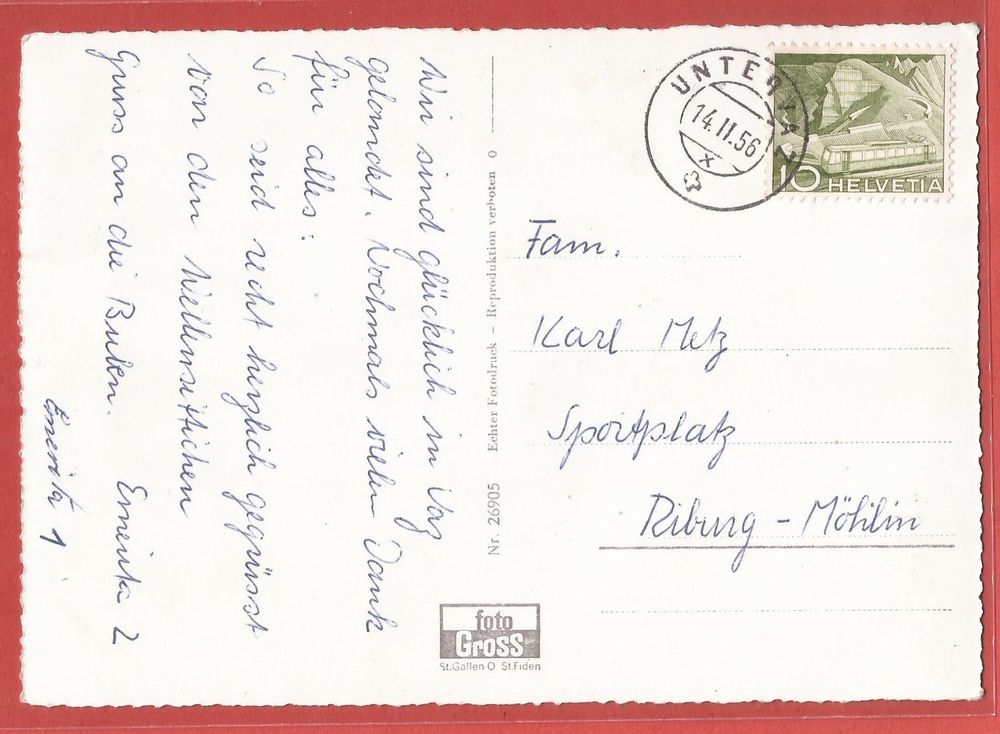 Wir sind glücklich in Vaz
gelandet. Nochmals vielen Dank
für alles.
So seid recht herzlich gegrüsst
von den Wellensittichen
Gruss an die Buben. Emerita 2
Emerita 1
Nr. 26905 Echter Fotodruck – Reproduktion verboten O
foto
Gross
St.Gallen O St.Fiden
UNTERVAZ
14.II.56
X
10 HELVETIA
Fam.
Karl Metz
Sportplatz
Riburg - Möhlin